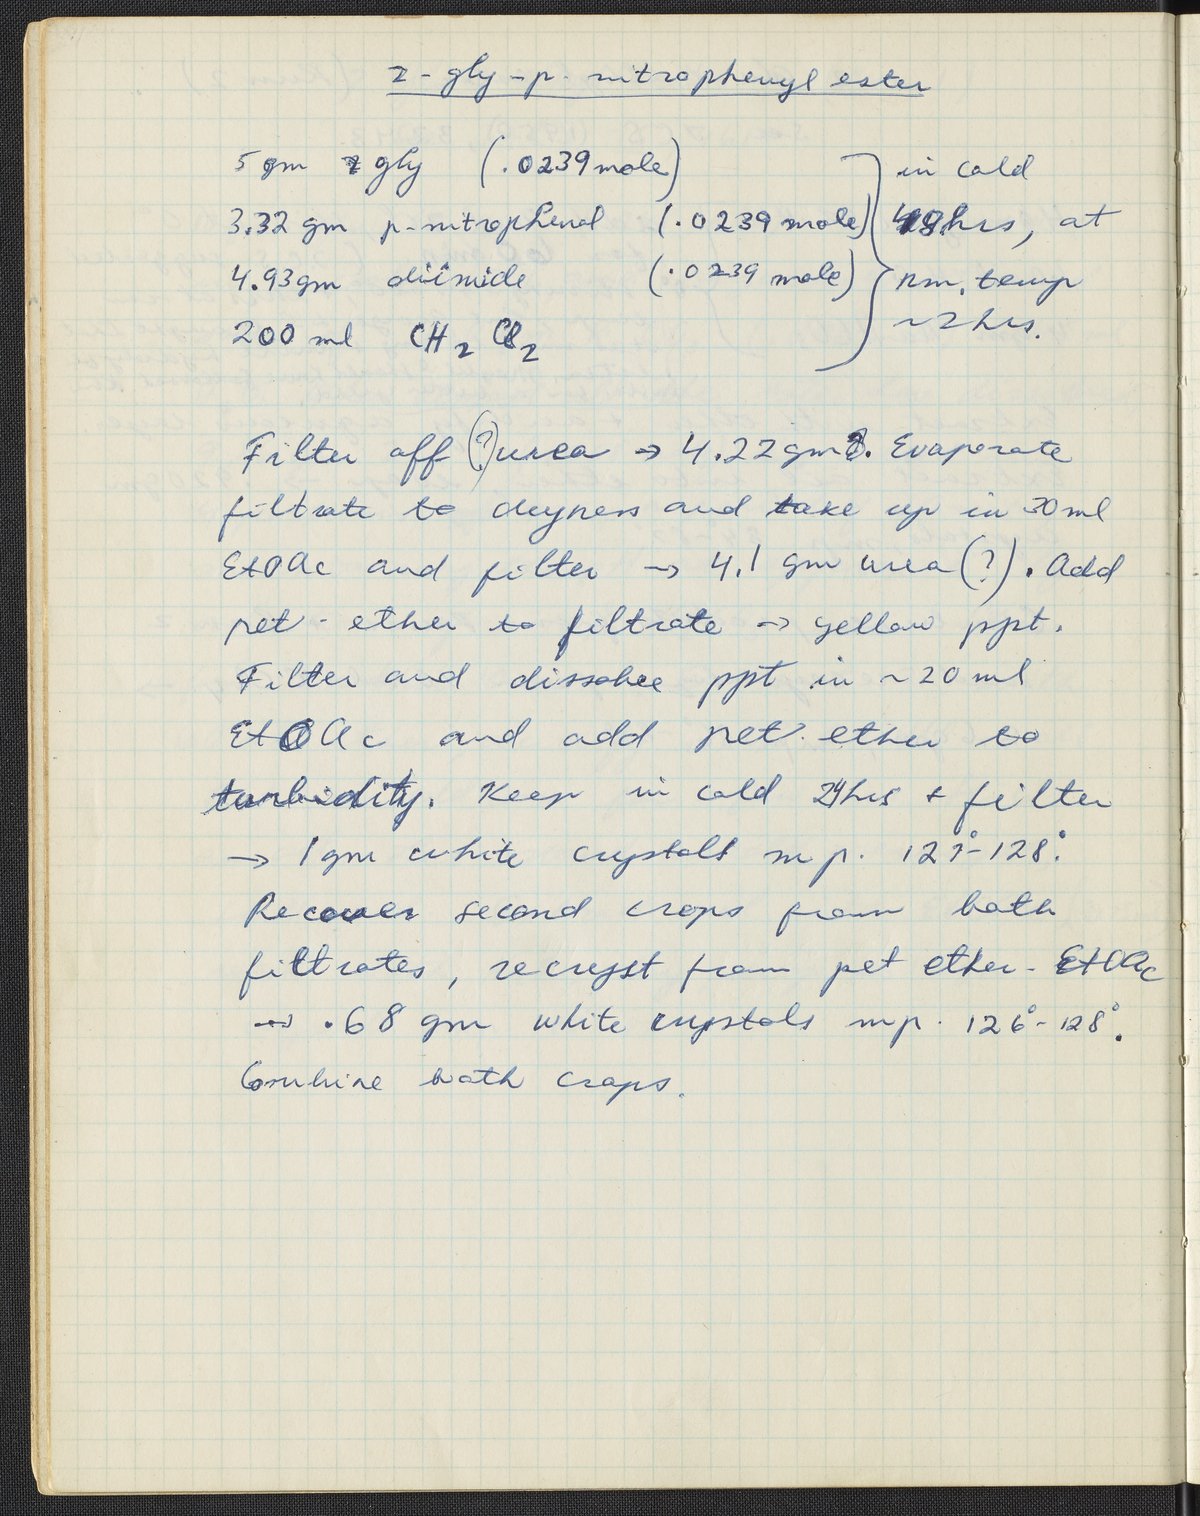 z-gly-p-nitrophenyl ester
5 gm z gly (.0239 mole)
3.32 gm p-nitrophenol (.0239 mole)
4.93 gm diimide (.0239 mole)
200 ml CH2Cl2
in cold
48 hrs, at
rm. temp
~2 hrs.
Filter off (?) urea → 4.22 gm. Evaporate
filtrate to dryness and take up in 30 ml
EtOAc and filter → 4.1 gm urea (?). Add
pet-ether to filtrate → yellow ppt.
Filter and dissolve ppt in ~20 ml
EtOAc and add pet. ether to
turbidity. Keep in cold 24 hrs + filter
→ 1 gm white crystals mp. 127°-128°.
Recover second crops from both
filtrates, recryst from pet ether-EtOAc
→ .68 gm white crystals mp. 126°-128°.
Combine both crops.